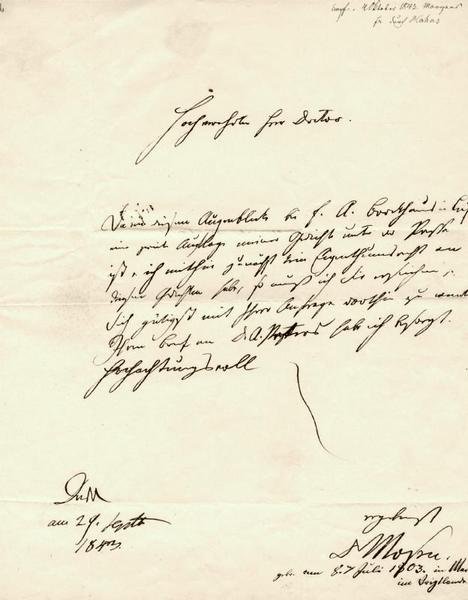 empf. 4 Oktober 1843. Morgens
Hochverehrter Herr Doctor.
Da in diesem Augenblicke bei F. A. Brockhaus in
eine zweite Auflage meiner Gedichte unter der Presse
ist, ich mithin zunächst kein Eigenthumsrecht an
diesen Gedichten habe, so muß ich Sie ersuchen,
Sich gütigst mit Ihrer Anfrage dorthin zu
Ihren Brief an D. A. Peters hab ich besorgt.
Hochachtungsvoll
am 29. Septb
1843.
ergebenst
D Mosen.
geb. am 8. Juli 1803. in
im Voigtlande